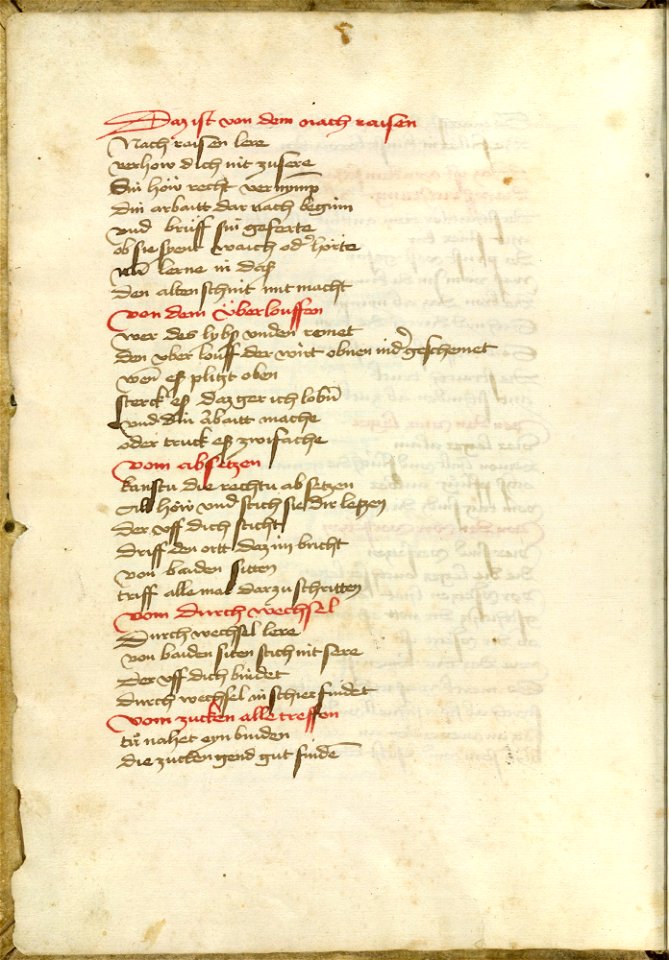 Daz ist von dem nach raisen
Nach raisen lere
verhow dich nit zu sere
Sin höw recht vernymp
Din arbaitt dar nach beginn
vnd brüff sin geferte
ob sie spent waich oder hörte
lerne in das
den alten schnit mit macht
Von dem Vberlouffen
wer des lybs vnden remet
den vber louff der wirt obnen inder geschemet
wen es pligt oben
sterck es daz ger ich lobn
vnd din arbaitt mache
oder truck es zwifache
Vom absetzen
kanstu die rechtu ab setzen
All höw vnd stich sie dir letzen
Der vff dich sticht
driff den ortt daz im bricht
von baiden sitten
triff alle mal darzu schritten
Vom durch wechsel
Durch wechsel lere
von baiden siten stich nit sere
Der vff dich bindet
durch wechsel in schier findet
Vom zucken alle treffen
tu nahet eyn binden
die zucken gend gut finde